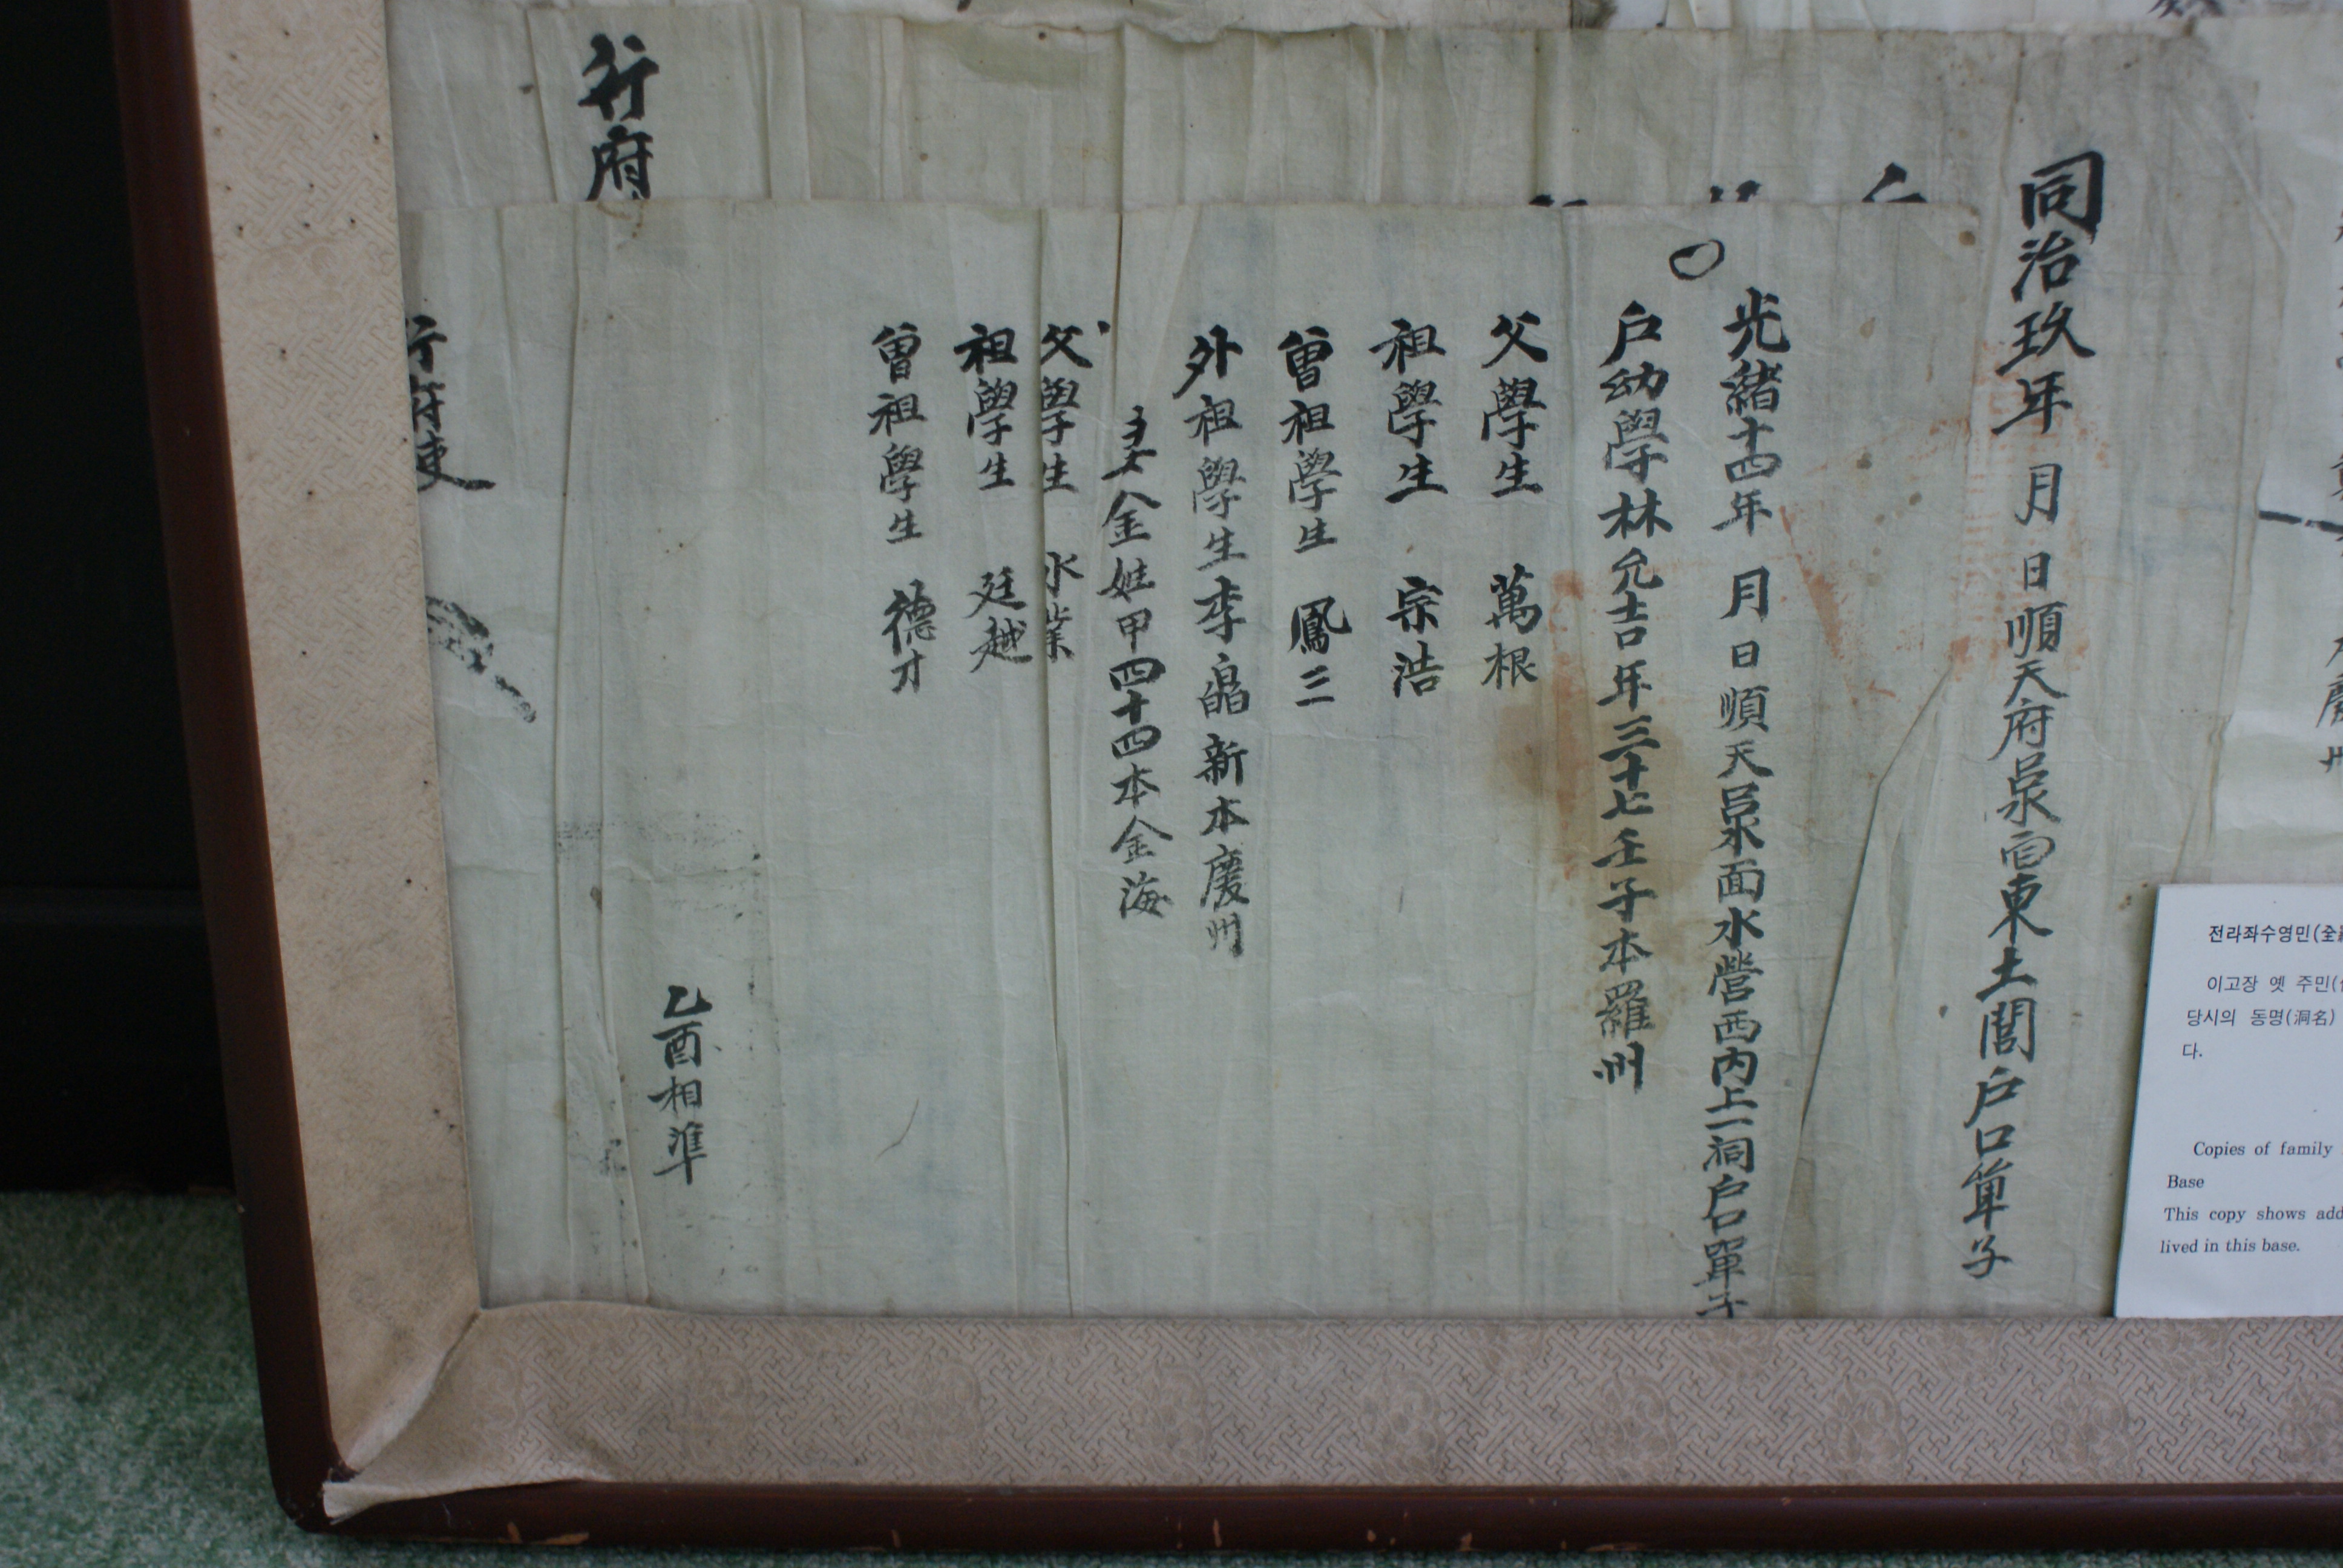 同治玖年 月 日順天府呂泉面東土閭戶口單子
光緖十四年 月 日順天呂泉面水營西內上一洞戶口單子
戶幼學林允吉年三十七壬子本羅州
父學生 萬根
祖學生 宗浩
曾祖學生 鳳三
外祖學生李 新本慶州
妻金姓甲四十四本金海
父學生 永業
祖學生 廷越
曾祖學生 德才
乙酉相準
行府
行府使
전라좌수영민(全
이고장 옛 주민(
당시의 동명(洞名)
다.
Copies of family
Base
This copy shows add
lived in this base.